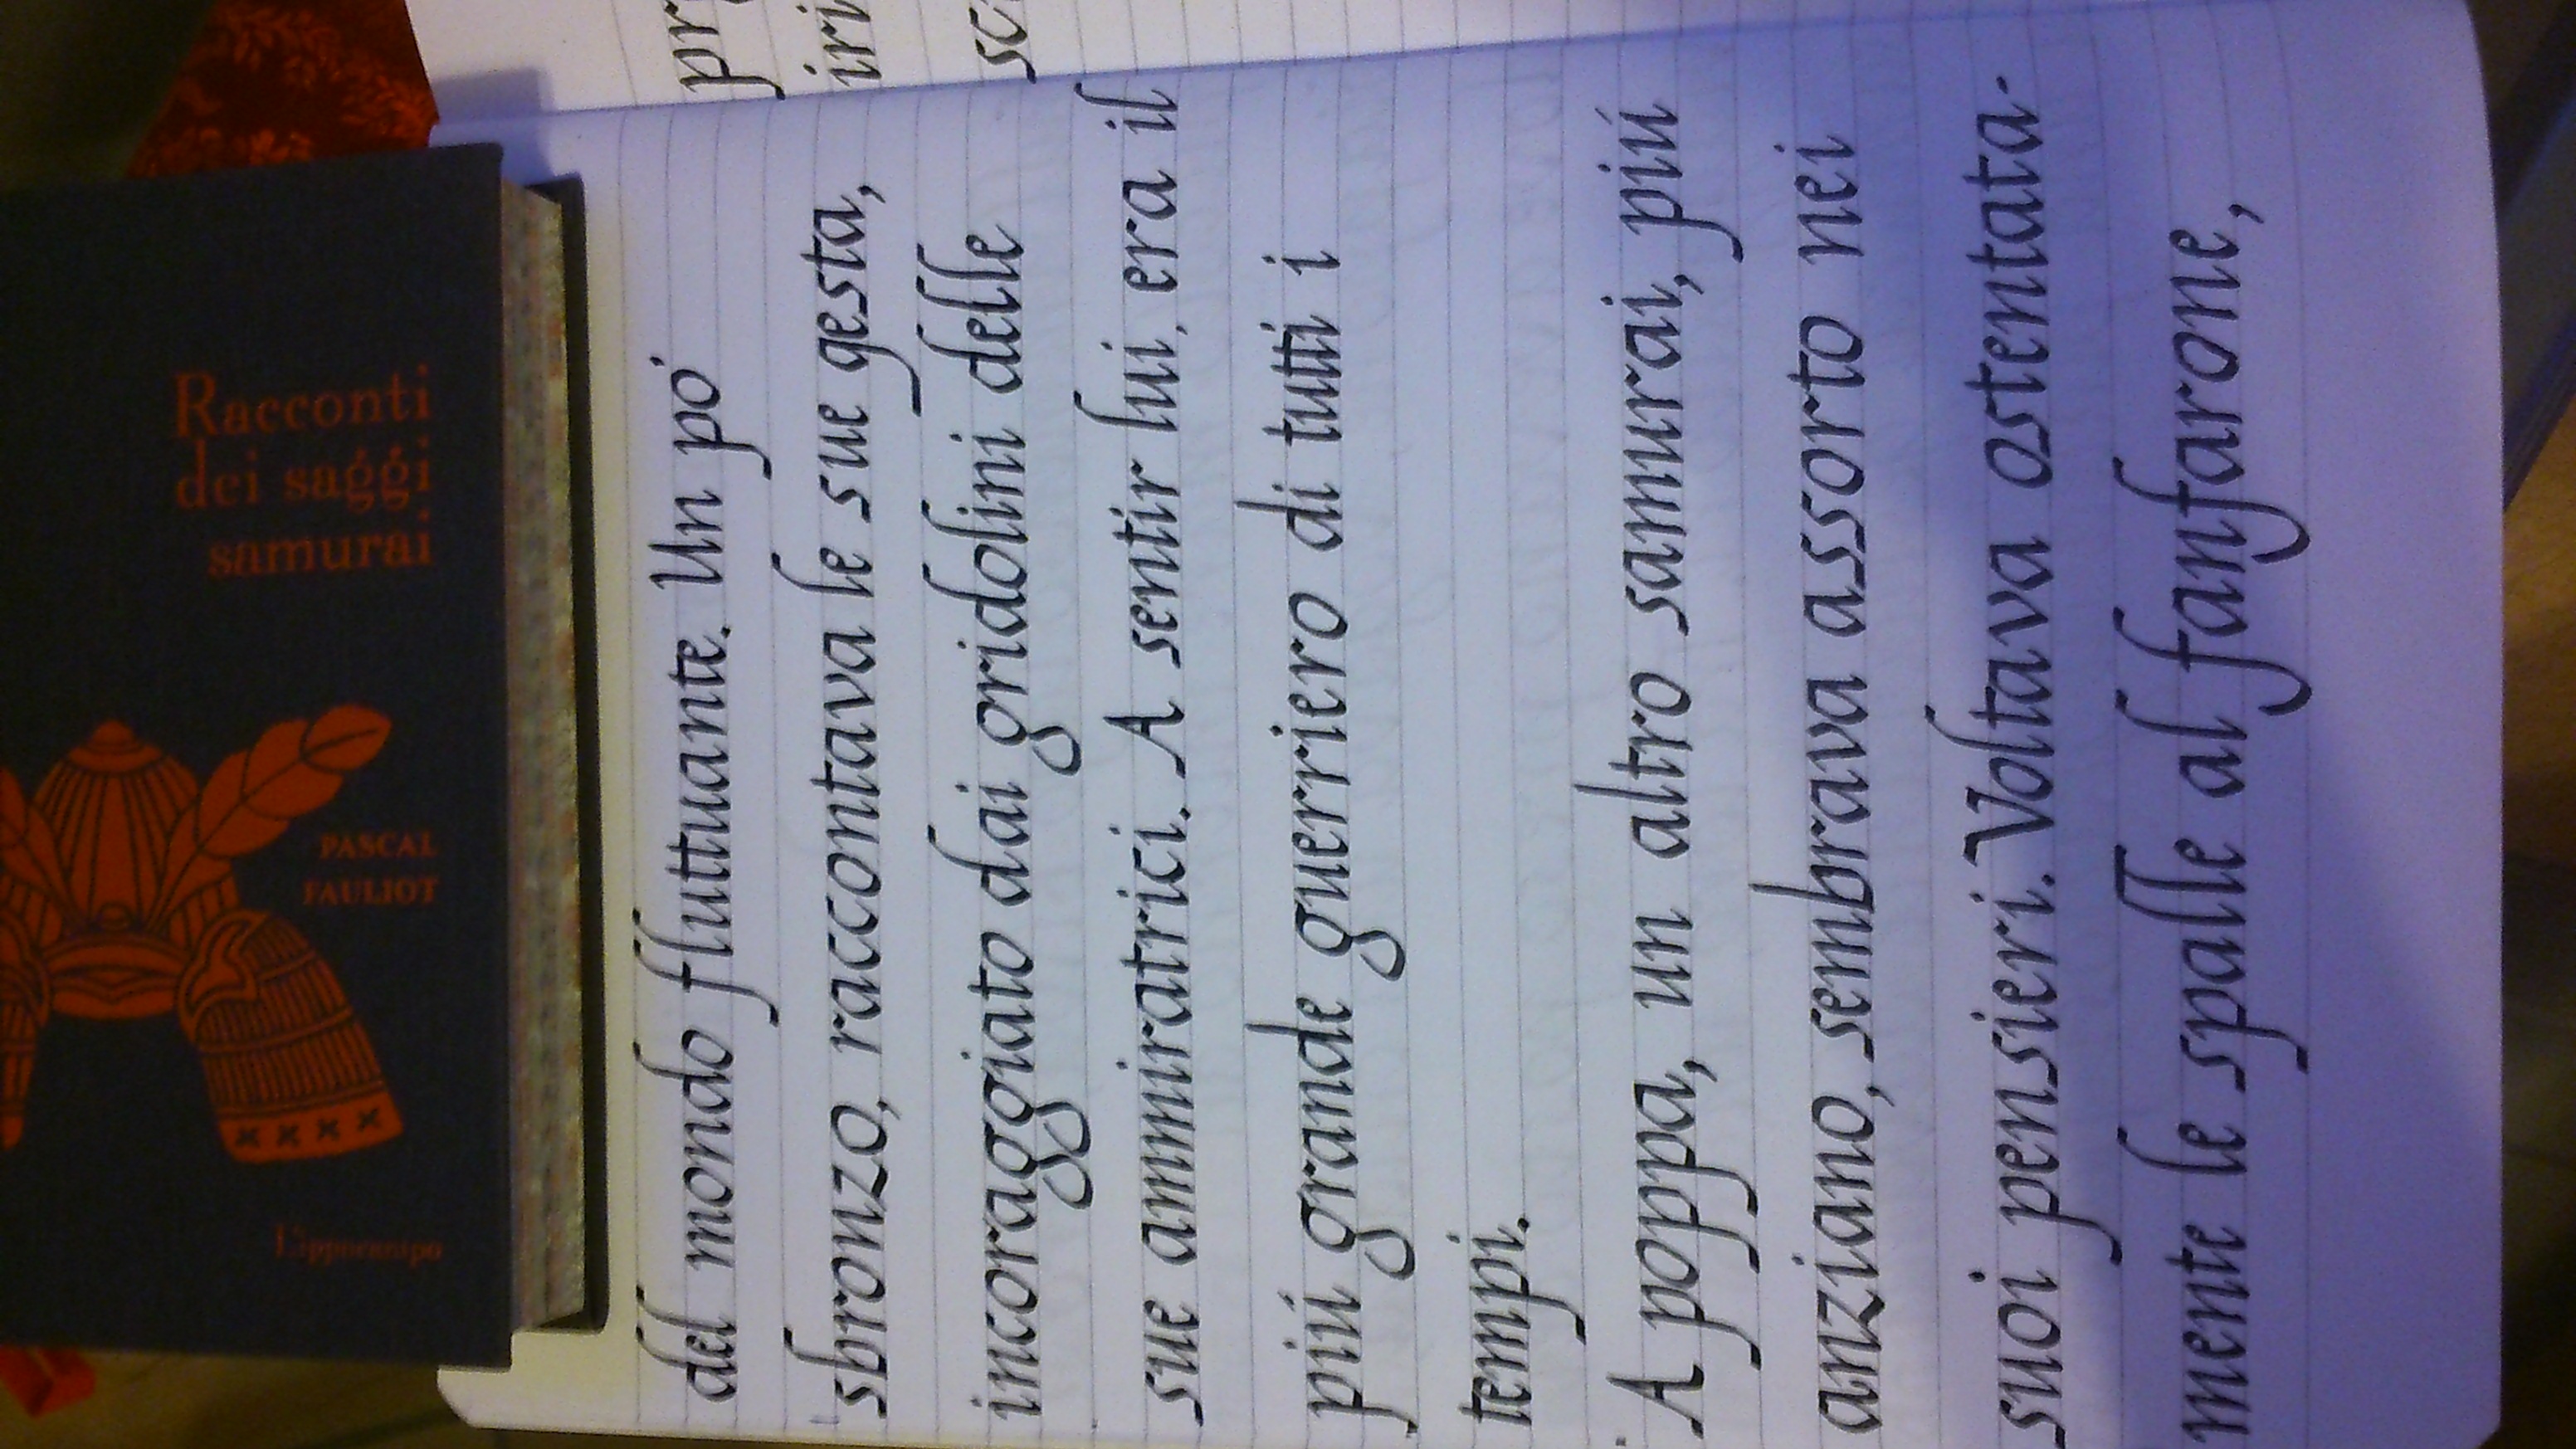 Racconti
dei saggi
samurai
PASCAL
FAULIOT
L'ippocampo
del mondo fluttuante. Un pó
sbronzo, raccontava le sue gesta,
incoraggiato dai gridolini delle
sue ammiratrici. A sentir lui, era il
piú grande guerriero di tutti i
tempi.
A poppa, un altro samurai, piú
anziano, sembrava assorto nei
suoi pensieri. Voltava ostentata-
mente le spalle al fanfarone,
pr
iri
sc